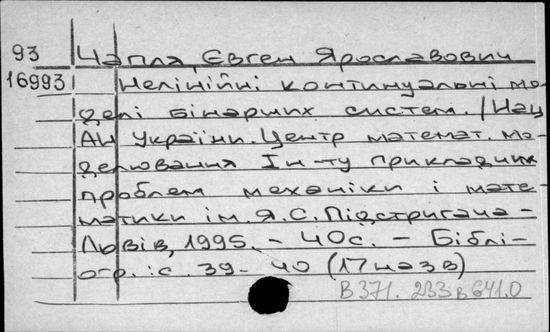 93 Чапля, Євген Ярославович
16993 Нелінійні континуальні мо-
делі бінарних систем. / Нац.
АН України. Центр математ. мо-
делювання Ін-ту прикладних
проблем механіки і мате-
матики ім. Я.С. Підстригача -
Львів, 1995. - 40с. - Біблі-
огр.: с. 39-40 (17 назв)
В371.233в641.0